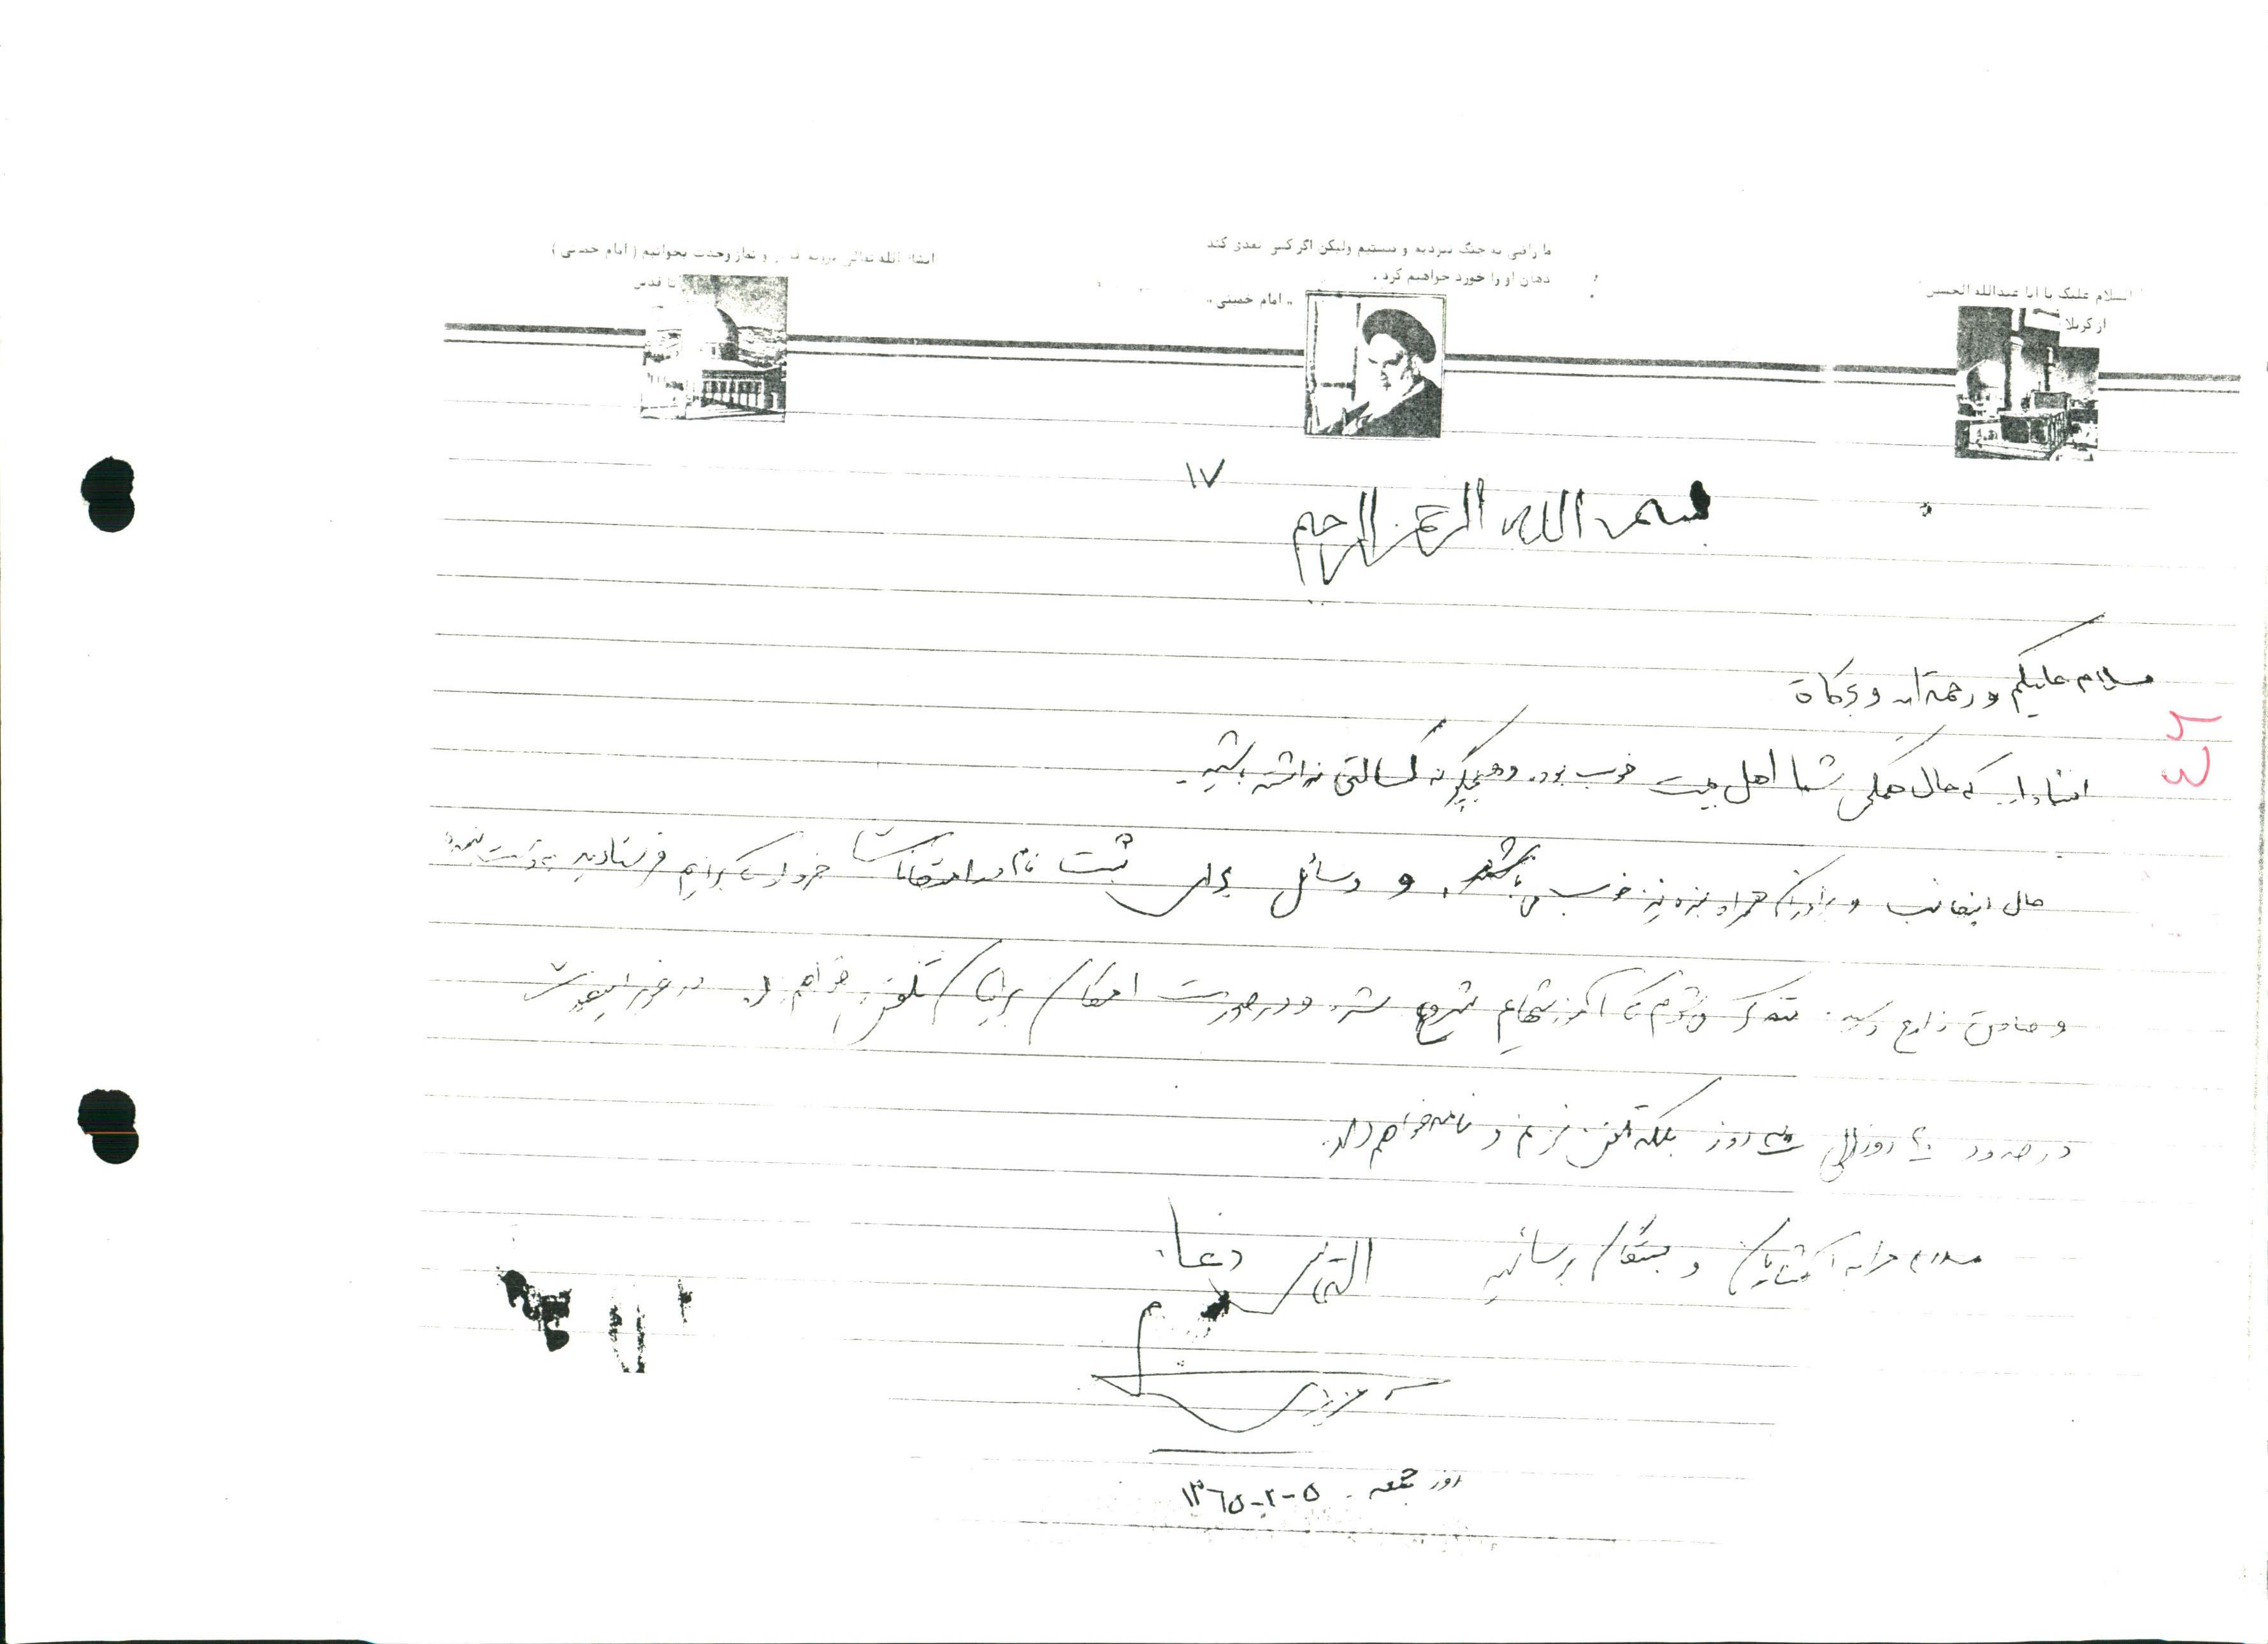 السلام علیک یا ابا عبدالله الحسین
از کربلا
ما راضی به جنگ نبودیم و نیستیم ولیکن اگر کسی تعدی کند
دهان او را خورد خواهیم کرد .
„ امام خمینی „
انشاء الله تعالی بروید قدس و نماز وحدت بخوانیم ( امام خمینی )
تا قدس
۱۷
بسم الله الرحمن الرحیم
سلام علیکم و رحمة الله و برکاة
انشاءالله که حال همگی شما اهل بیت خوب بوده و هیچگونه کسالتی نداشته باشید.
حال اینجانب و برادران همراه بنده نیز خوب می باشد. و وسائل برای ثبت نام در امتحانات خرداد که برایم فرستادید بدست بنده
و رسید. متذکر می شوم که آموزشهایم شروع شده و در صورت امکان برایتان تلفن خواهم زد در غیر اینصورت
در حدود ۲۰ روز الی روز بلکه تلفن بزنم و نامه خواهم داد.
سلام مرا به آشنایان و بستگان برسانید التماس دعا
روز جمعه - ۵-۲-۱۳۶۵
۳۵